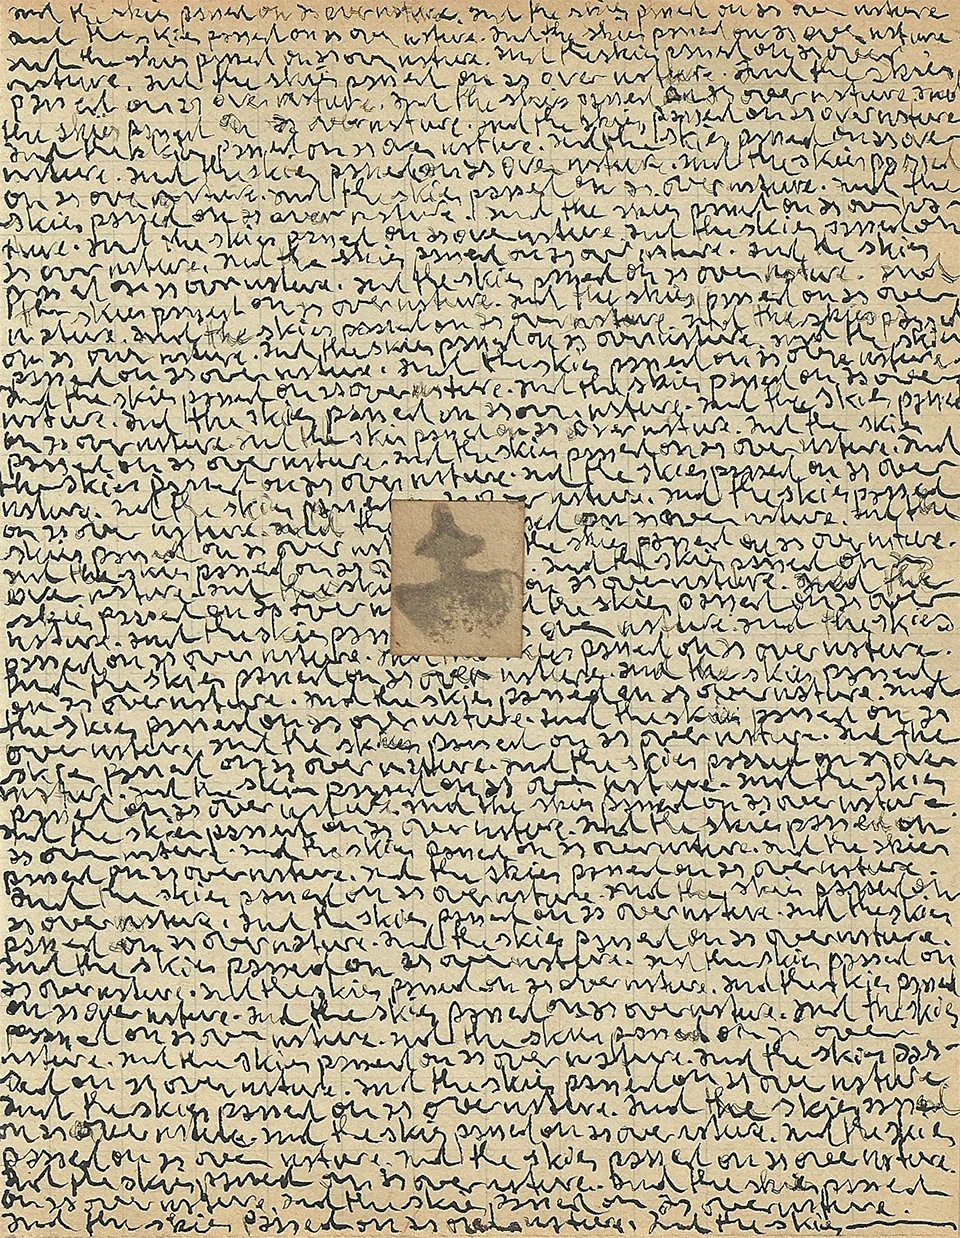 and the skies passed on as over nature. and the skies passed on as over nature
and the skies passed on as over nature. and the skies passed on as over nature
and the skies passed on as over nature. and the skies passed on as over
nature. and the skies passed on as over nature. and the skies
passed on as over nature. and the skies passed on as over nature. and
the skies passed on as over nature. and the skies passed on as over nature
and the skies passed on as over nature. and the skies passed on as over
nature. and the skies passed on as over nature. and the skies passed
on as over nature. and the skies passed on as over nature. and the
skies passed on as over nature. and the skies passed on as over na-
ture. and the skies passed on as over nature and the skies passed on
as over nature. and the skies passed on as over nature. and the skies
passed on as over nature. and the skies passed on as over nature. and
the skies passed on as over nature. and the skies passed on as over
nature. and the skies passed on as over nature. and the skies passed
on as over nature. and the skies passed on as over nature. and the skies
passed on as over nature. and the skies passed on as over nature.
and the skies passed on as over nature. and the skies passed on as over
nature. and the skies passed on as over nature. and the skies passed
on as over nature. and the skies passed on as over nature. and the skies
passed on as over nature. and the skies passed on as over nature. and
the skies passed on as over nature. and the skies passed on as over
nature. and the skies passed and the skies passed
on as over nature. and the passed on as over nature. and the
skies passed on as over skies passed on as over nature.
and the skies passed on as and the skies passed on
over nature. and the skies on as over nature. and the
skies passed on as over the skies passed on as over
nature. and the skies as over nature. and the skies
passed on as over nature. and the skies passed on as over nature.
and the skies passed on as over nature. and the skies passed
on as over nature. and the skies passed on as over nature. and
the skies passed on as over nature. and the skies passed on as
over nature. and the skies passed on as over nature. and the
skies passed on as over nature. and the skies passed on as over
nature. and the skies passed on as over nature. and the skies
passed on as over nature. and the skies passed on as over nature.
and the skies passed on as over nature. and the skies passed on
as over nature. and the skies passed on as over nature. and the skies
passed on as over nature. and the skies passed on as over nature.
and the skies passed on as over nature. and the skies passed on
as over nature. and the skies passed on as over nature. and the skies
passed on as over nature. and the skies passed on as over nature.
and the skies passed on as over nature. and the skies passed on
as over nature. and the skies passed on as over nature. and the skies passed
on as over nature. and the skies passed on as over nature. and the skies
passed on as over nature. and the skies passed on as over
nature. and the skies passed on as over nature. and the skies pas-
sed on as over nature. and the skies passed on as over nature
and the skies passed on as over nature. and the skies passed
on as over nature. and the skies passed on as over nature. and the skies
passed on as over nature. and the skies passed on as over nature.
and the skies passed on as over nature. and the skies passed
on as over nature. and the skies passed on as over nature.
and the skies passed on as over nature. and the skies